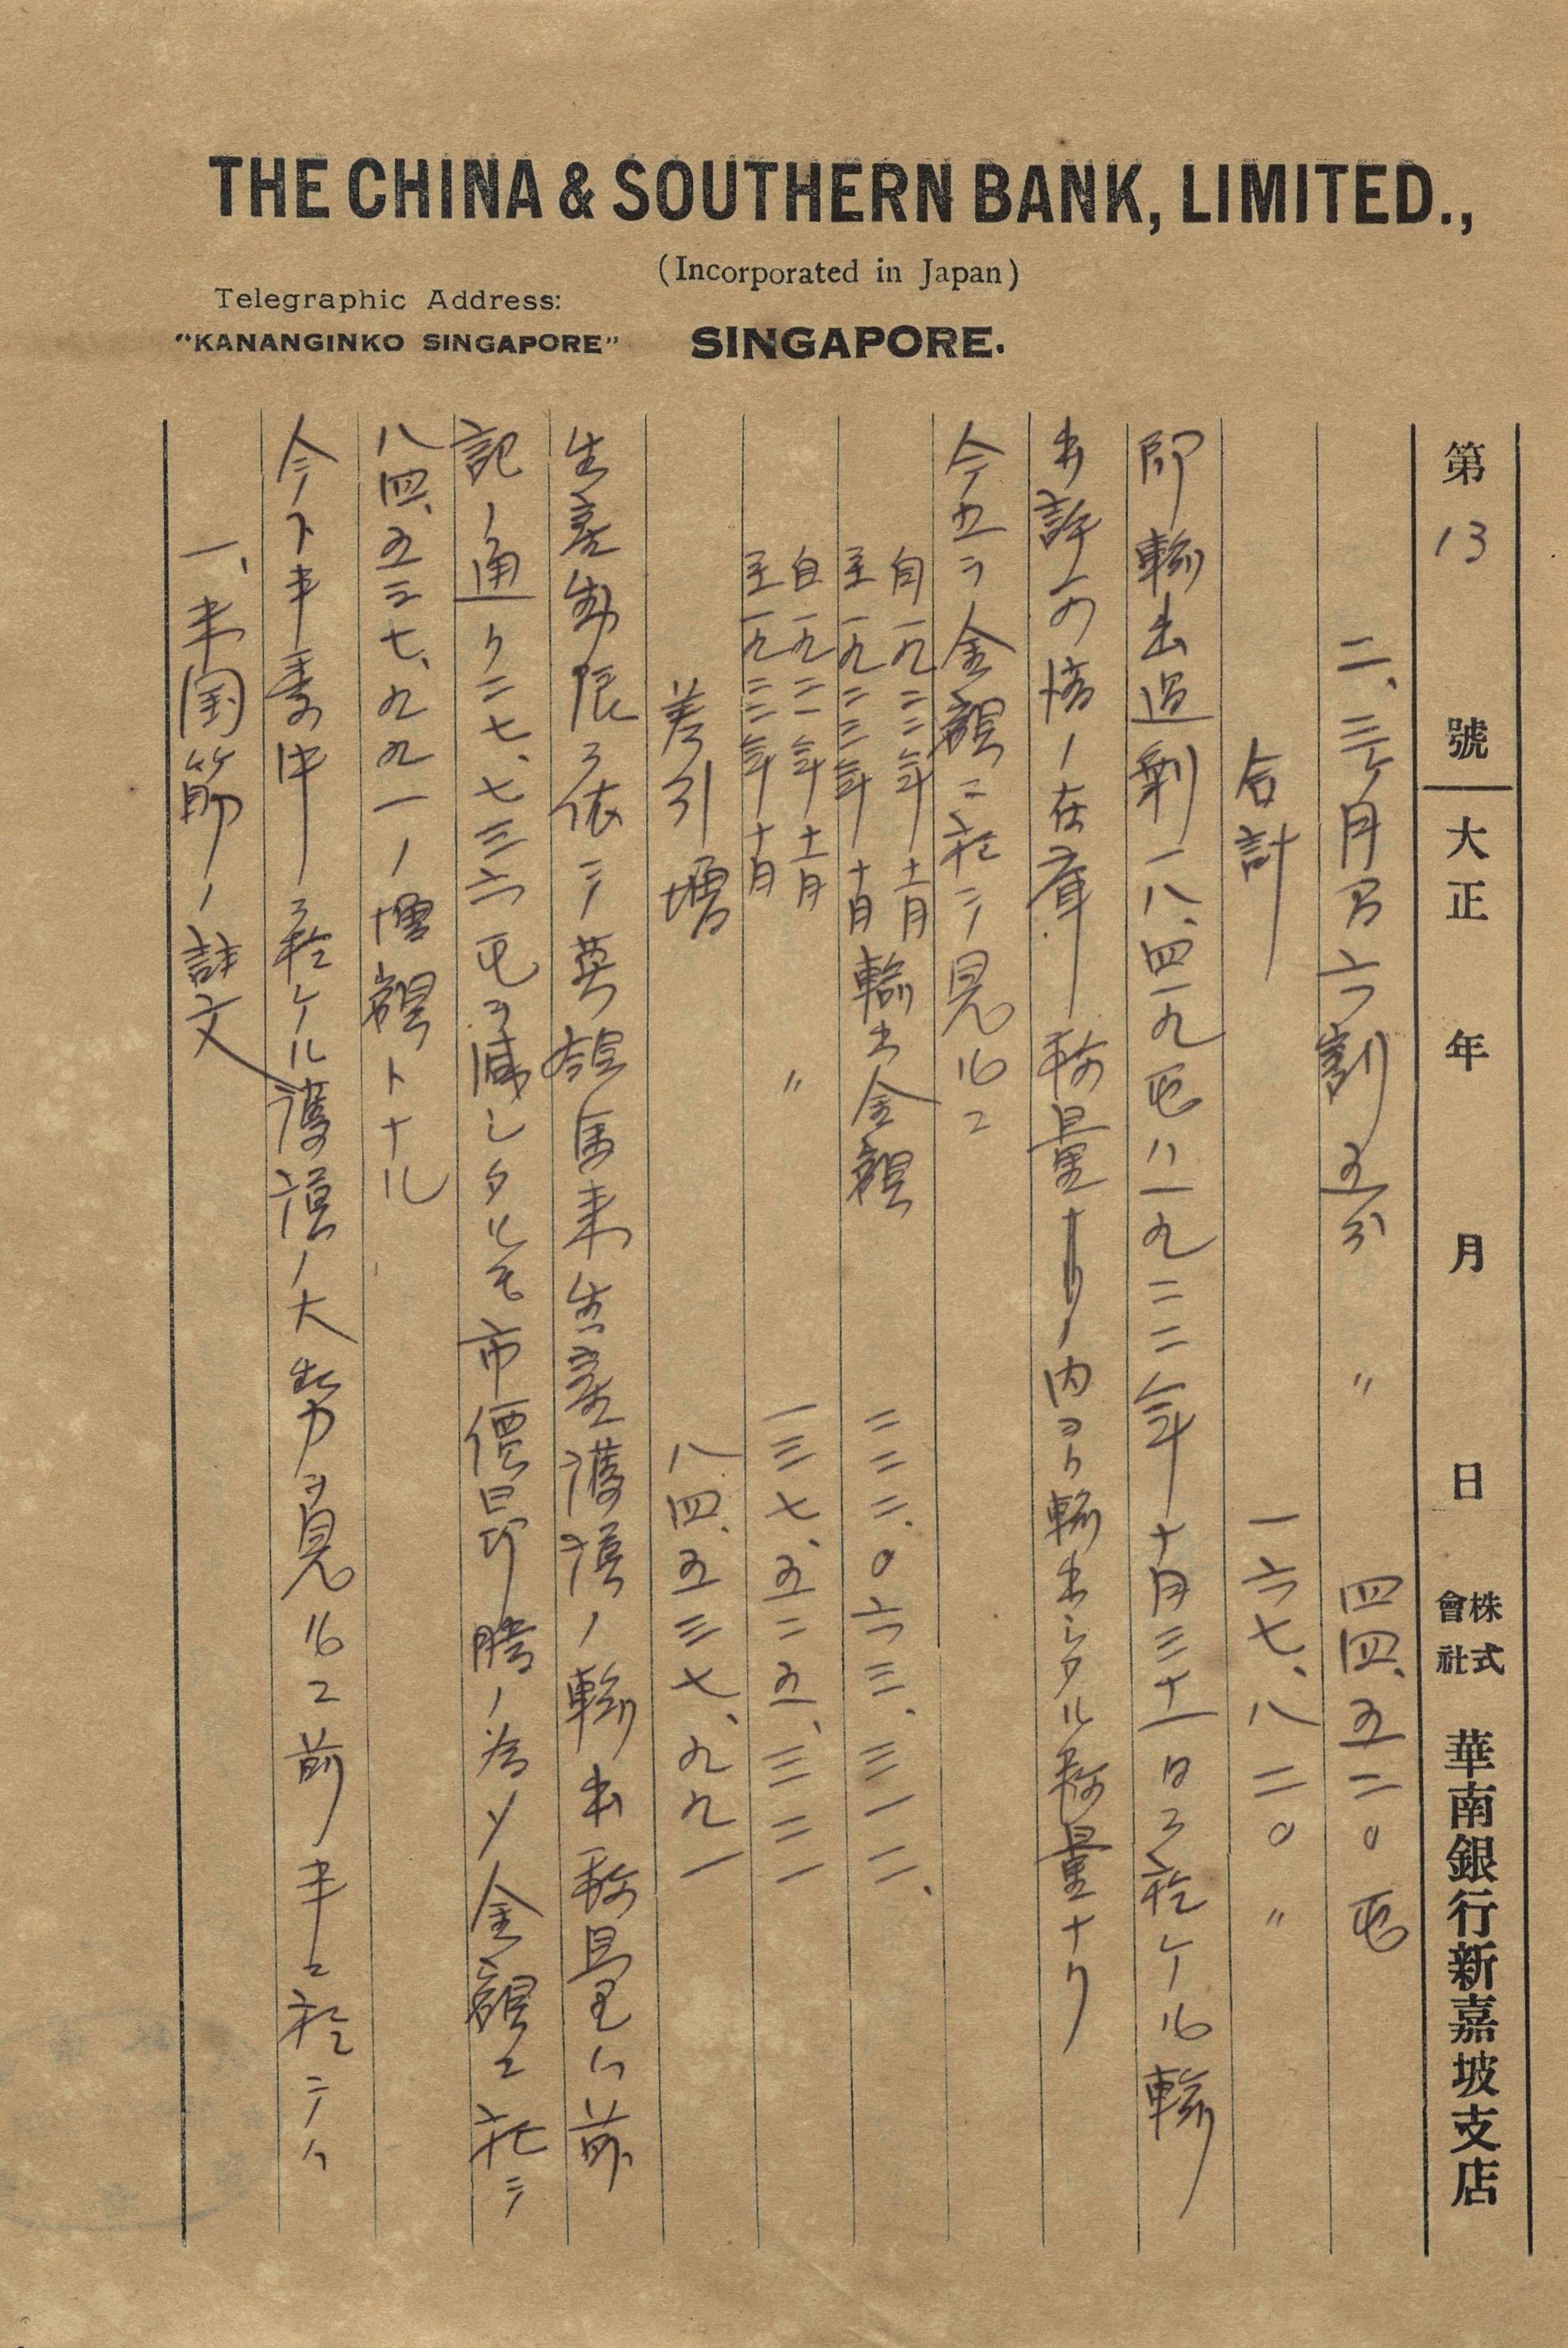 THE CHINA & SOUTHERN BANK, LIMITED.,
(Incorporated in Japan)
Telegraphic Address:
"KANANGINKO SINGAPORE"
SINGAPORE.
第13號 大正 年 月 日 株式會社 華南銀行新嘉坡支店
二、三ヶ月分六割五分 〃 四四、五二〇屯
合計 一六七、八二〇〃
即輸出過剰一八、四一九屯ハ一九二二年十月三十一日ニ於ケル輸
出許可済ノ在庫称量ノ内ヨリ輸出シタル称量ナリ
今五ヲ金額ニ於テ見ルニ
自一九二二年十一月
至一九二三年十月 輸出金額 二二二、〇六三、三一二、
自一九二一年十一月
至一九二二年十月 〃 一三七、五二五、三二一
差引増 八四、五三七、九九一
生産制限ニ依テ英領馬来生産護謨ノ輸出称量ハ前
記ノ通リ二七、七三六屯ヲ減シタルモ市價昂騰ノ為メ金額ニ於テ
八四、五三七、九九一ノ増額トナル
今下半季中ニ於ケル護謨ノ大勢ヲ見ルニ前半ニ於テハ
一、米国筋ノ註文